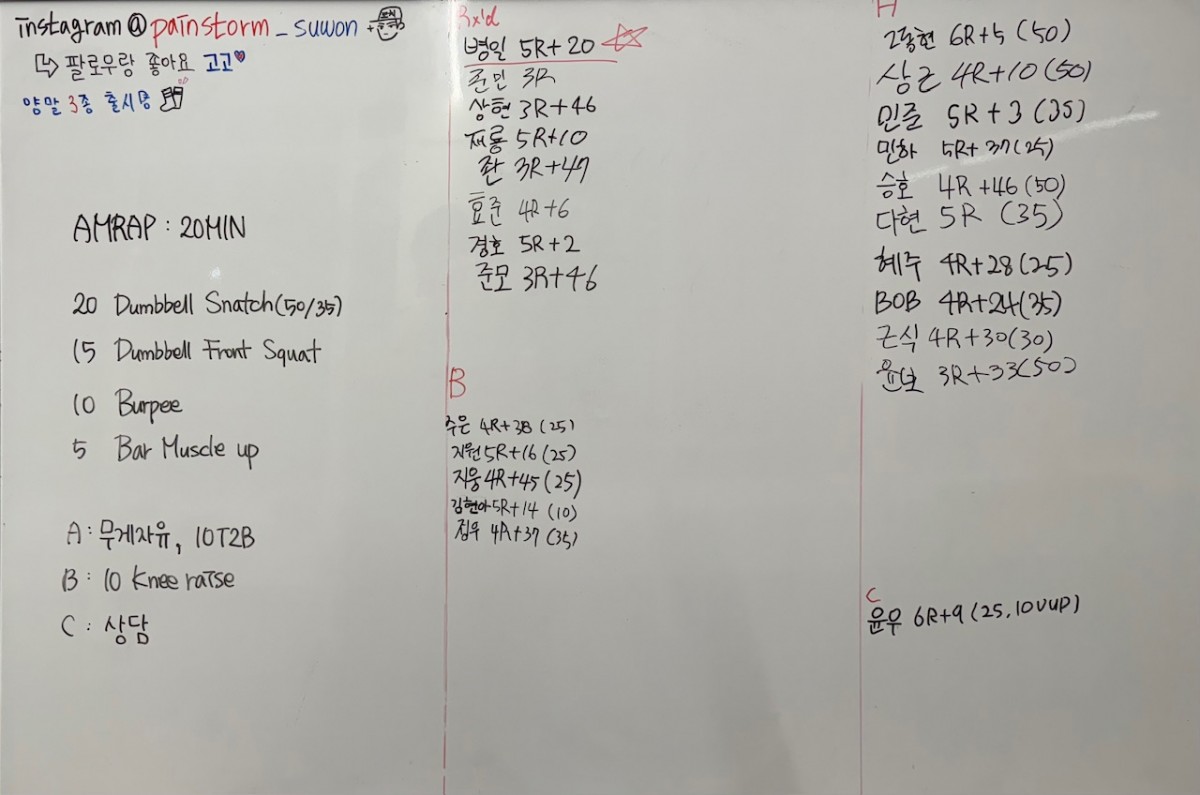 instagram @painstorm_suwon +
팔로우랑 좋아요 고고
양말 3종 출시중
AMRAP : 20MIN
20 Dumbbell Snatch (50/35)
15 Dumbbell Front Squat
10 Burpee
5 Bar Muscle up
A : 무게자유, 10T2B
B : 10 Knee raise
C : 상담
Rx'd
병일 5R+20
준민 3R
상현 3R+46
재룡 5R+10
환 3R+47
효준 4R+6
경호 5R+2
준모 3R+46
B
주은 4R+38 (25)
지원 5R+16 (25)
지웅 4R+45 (25)
김현아 5R+14 (10)
정우 4R+37 (35)
A
6R+5 (50)
상근 4R+10 (50)
민준 5R+3 (35)
민하 5R+37 (25)
승호 4R+46 (50)
다현 5R (35)
혜주 4R+28 (25)
BOB 4R+24 (35)
근식 4R+30 (30)
윤보 3R+33 (50)
C
윤우 6R+9 (25, 10VUP)